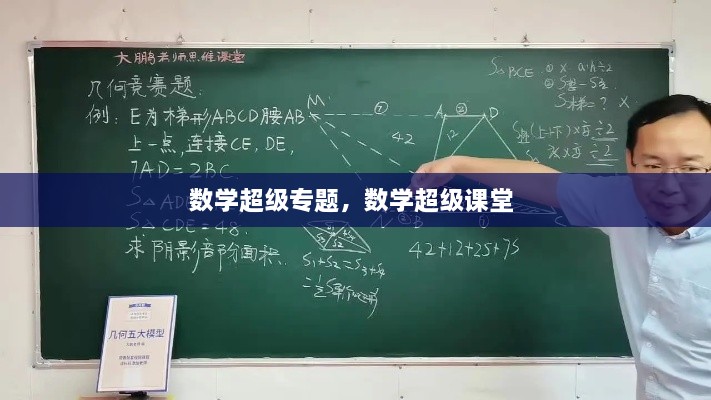 大鹏老师思维课堂
几何竞赛题:
例: E为梯形ABCD腰AB
上一点,连接CE,DE,
7AD=2BC.
S△AD
S△CDE=48.
求阴影部分面积.
M
⑦
A
②
D
42
12
S△BCE ① × a·h÷2
S梯=? ×
S梯 (上+下)×高÷2
÷2
数学超级专题，数学超级课堂
S₁+S₂=S₃+S₄
B
42+12+25+75
几何五大模型